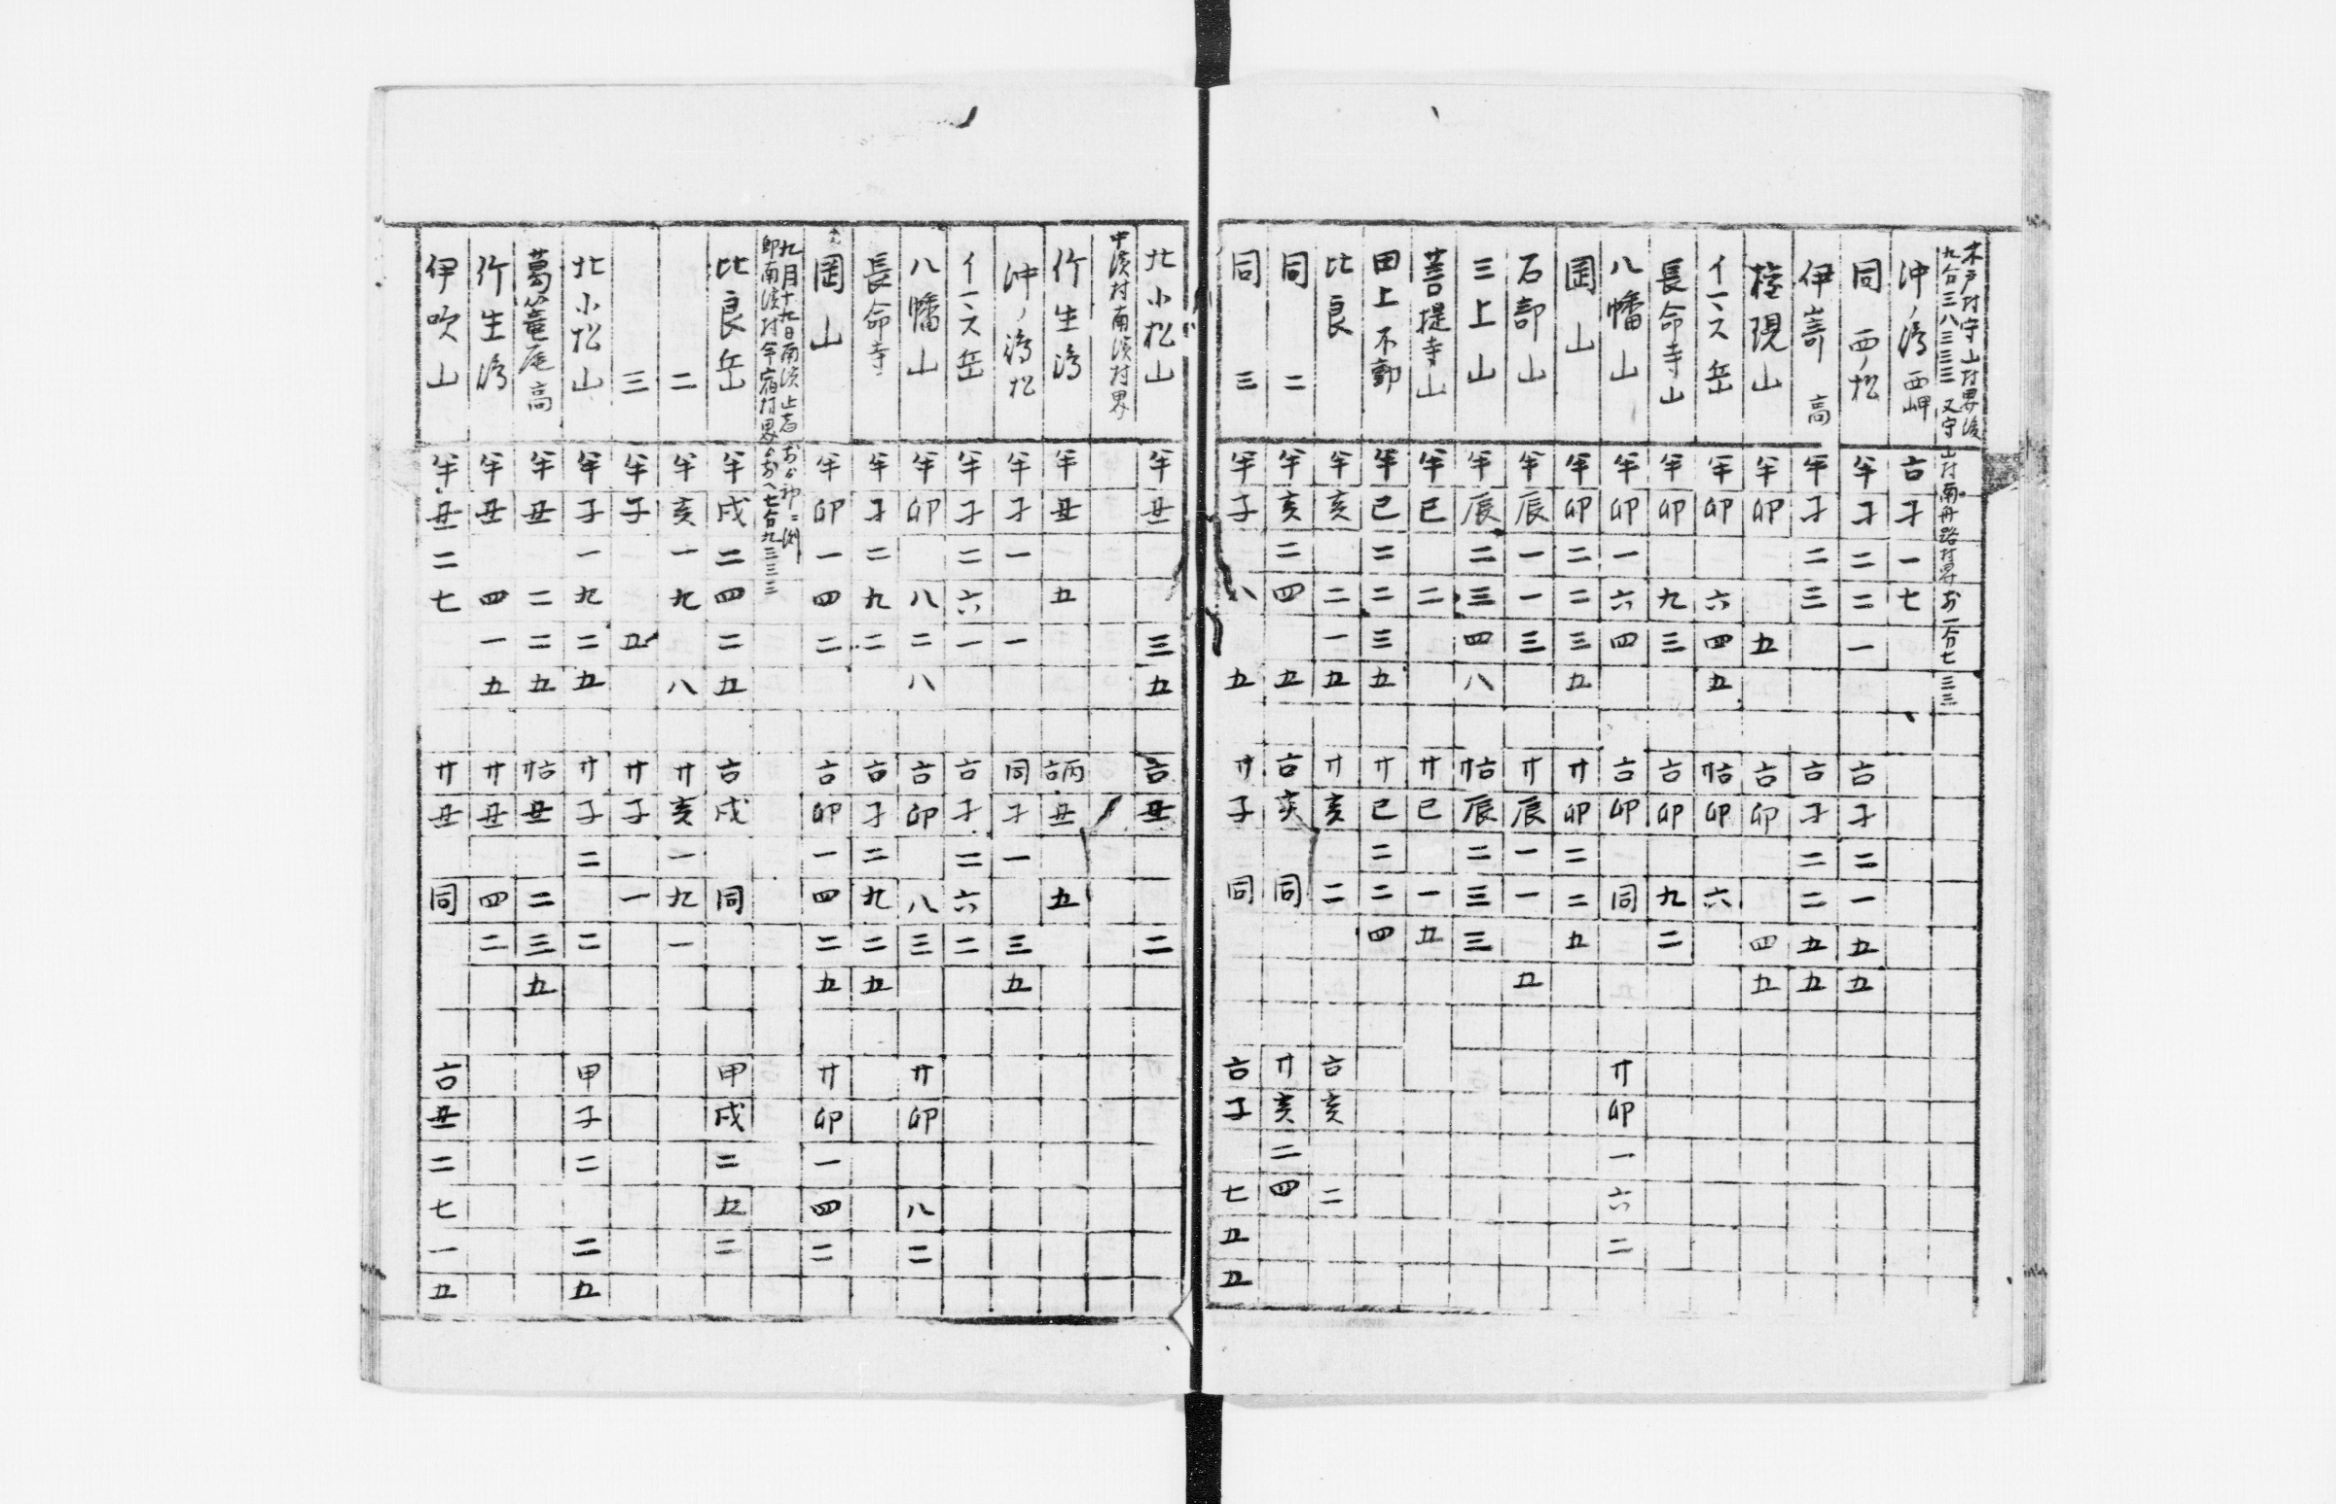 木戸村守山村界後
九合三八三三三 又守山村南舟路村界 お一分七三三
沖ノ湾西岬 古子一七
同西ノ松 半子二二一 古子二一五五
伊㟢高 半子二三 古子二二五五
権現山 半卯五 古卯四五
イ一六岳 半卯六四五 卄古卯六
長命寺山 半卯九三 古卯九二
八幡山 半卯一六四 古卯同 卄卯一六二
岡山 半卯二二三五 卄卯二二五
石部山 半辰一一三 卄辰一一五
三上山 半辰二三四八 卄古辰二三三
菩提寺山 半巳二 卄巳一五
田上不動 半巳二二三五 卄巳二二四
比良 半亥二一五 卄亥二 古亥二
同二 半亥二四五 古亥同 卄亥二四
同三 半子八五 卄子同 古子七五五
北小松山 半丑三五 古丑二
中濱村南濱村界
竹生湾 半丑五 古丙丑五
沖ノ湾松 半子一一 同子一三五
イ一六岳 半子二六一 古子二六二
八幡山 半卯八二八 古卯八三 卄卯八二
長命寺 半子二九二 古子二九二五
岡山 半卯一四二 古卯一四二五 卄卯一四二
九月十九日南濱止宿
即南濱村今宿村界 七合九三三三
比良岳 半戌二四二五 古戌同 甲戌二五二
二 半亥一九八 卄亥一九一
三 半子五 卄子一
北小松山 半子一九二五 卄子二二 甲子二二五
葛篭尾高 半丑二二五 卄古丑二三五
竹生湾 半丑四一五 卄丑四二
伊吹山 半丑二七 卄丑同 古丑二七一五